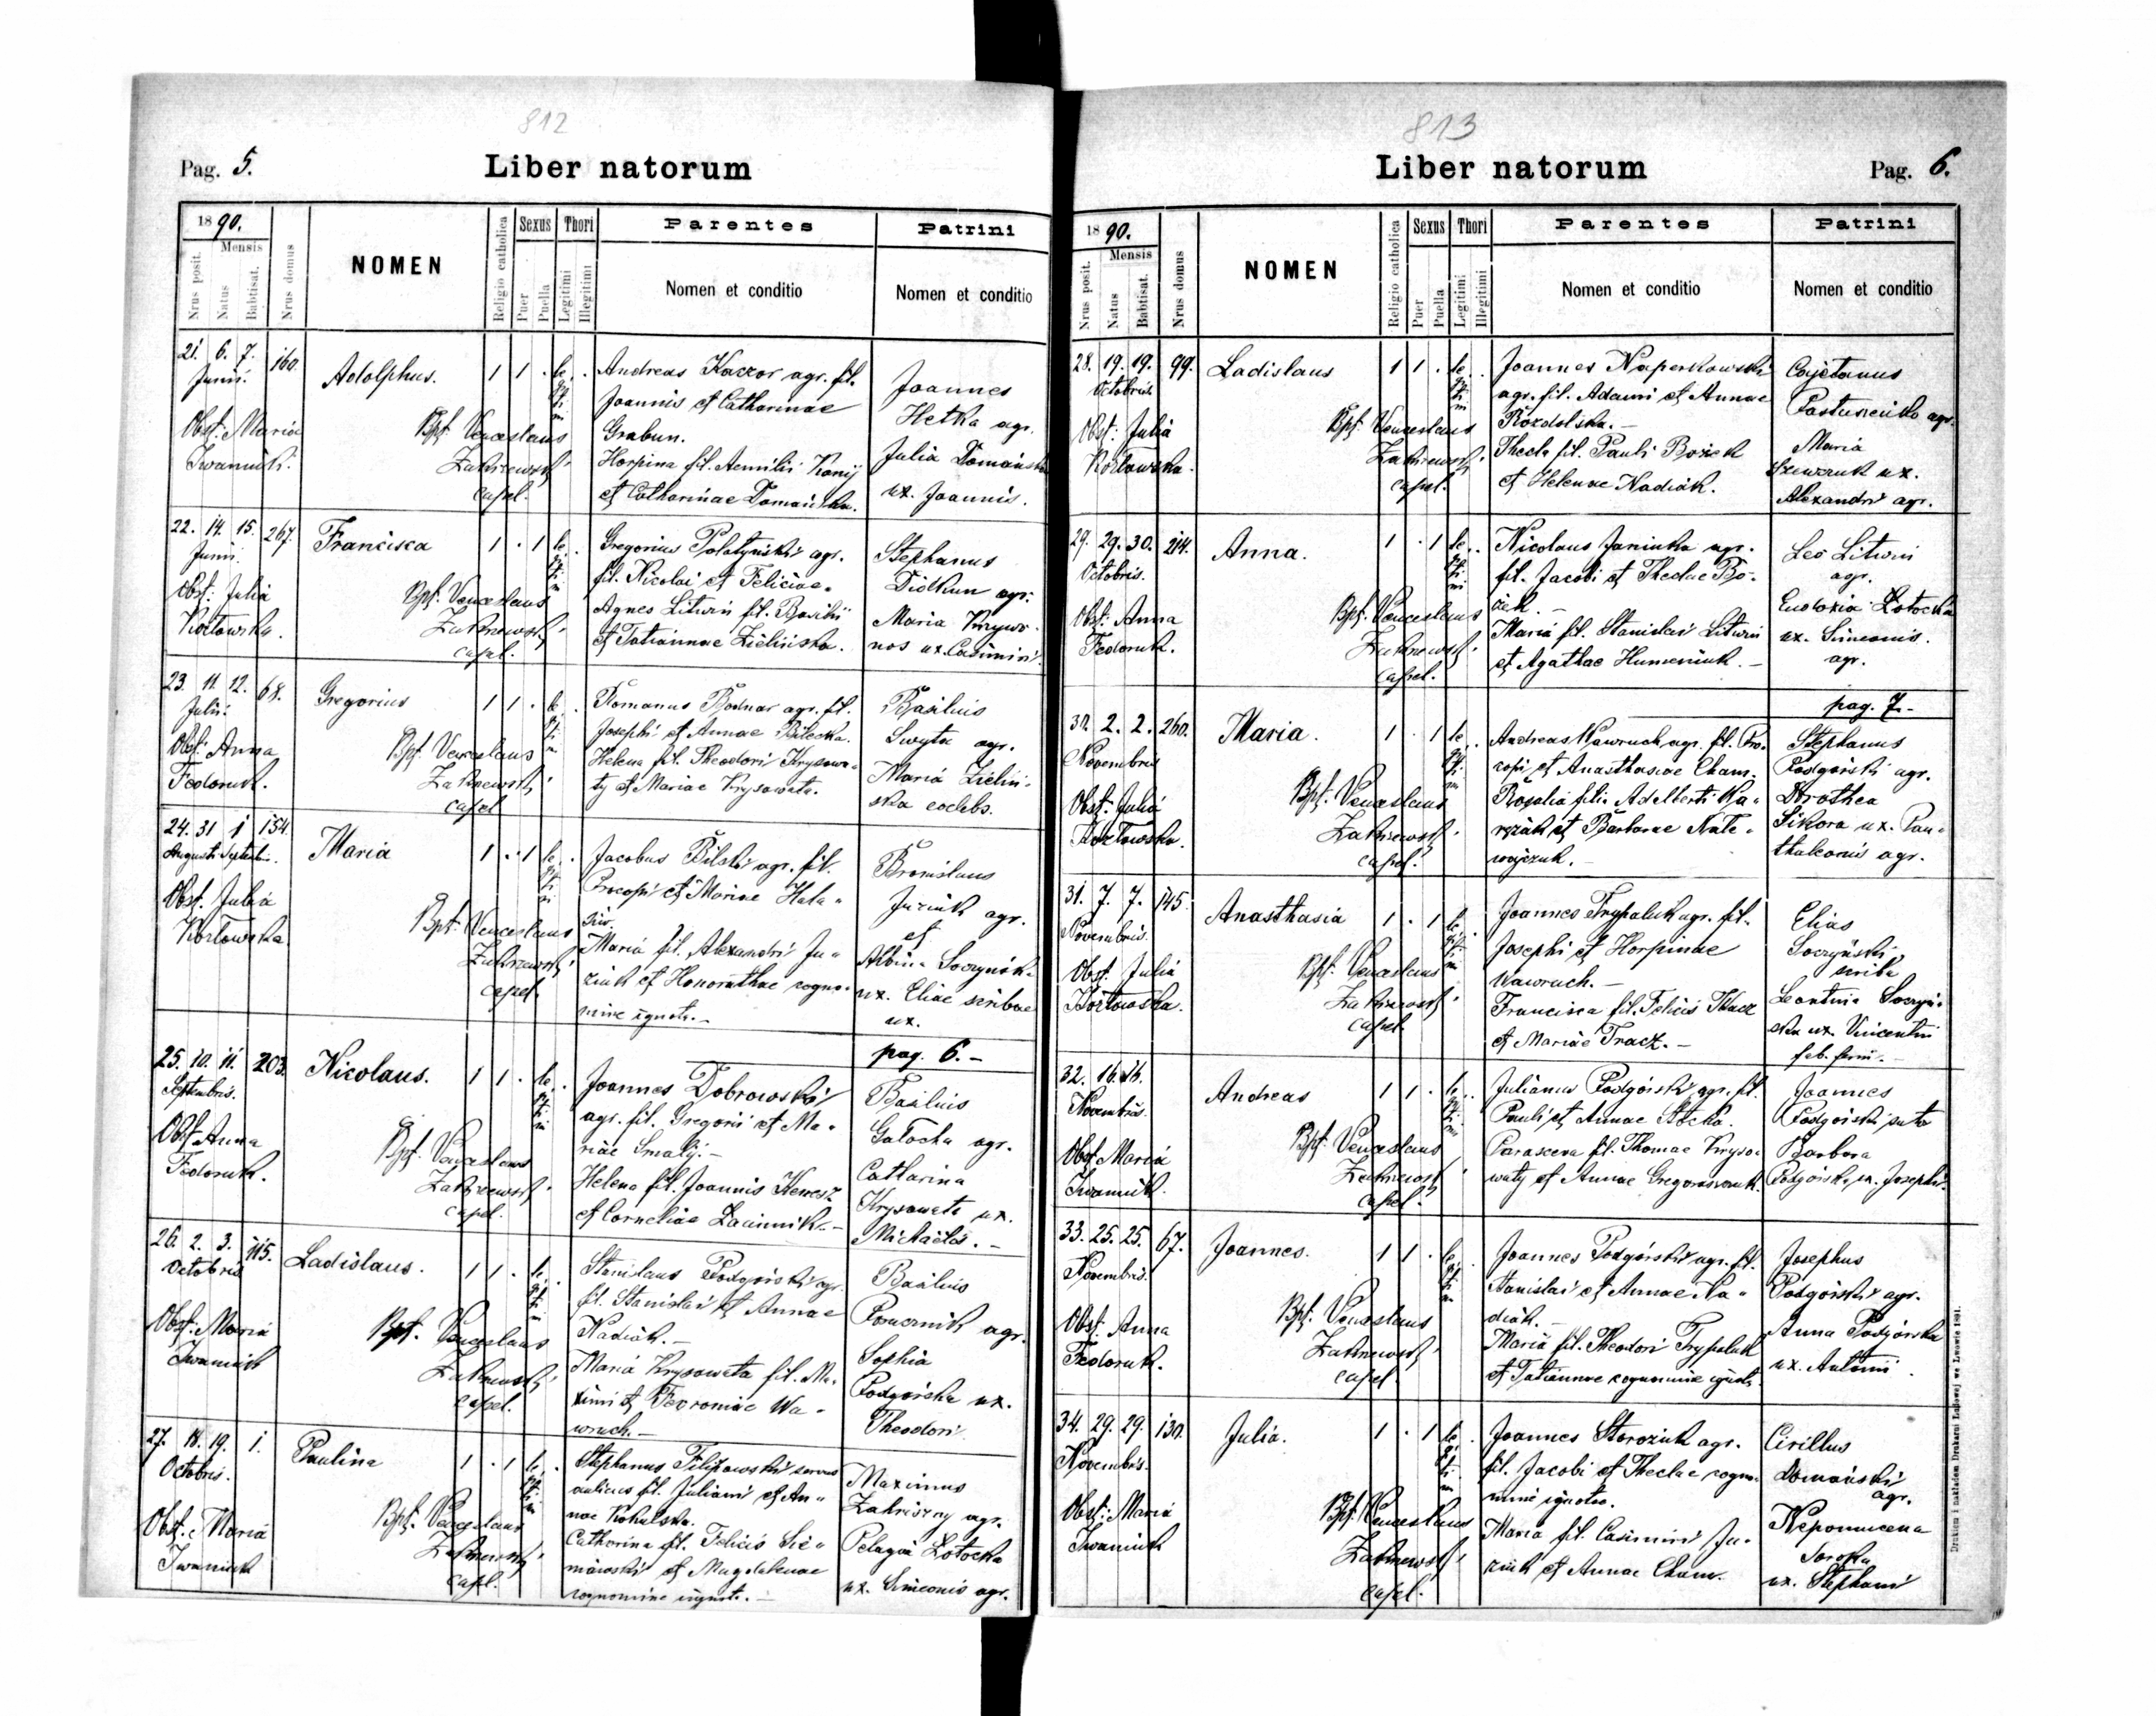 812
Pag. 5.
Liber natorum
1890.
Mensis
Nrus posit.
Natus
Babtisat.
Nrus domus
NOMEN
Religio catholica
Sexus
Puer
Puella
Thori
Legitimi
Illegitimi
Parentes
Nomen et conditio
Patrini
Nomen et conditio
21. 6. 7. 160.
Junii.
Obst: Maria
Iwaniuk.
Adolphus.
Bpt. Venceslaus
capel.
1 1 .
Andreas Kaczor agr. fil.
Joannis et Catharinae
Grabun.
Horpina fil. Aemilii
et Catharinae Domańska.
Joannes
Hetka agr.
Julia Domańska
ux. Joannis.
22. 14. 15. 267.
Junii.
Obst: Julia
Kozłowska.
Francisca
Bpt. Venceslaus
capel.
1 . 1
Gregorius Połatyński agr.
fil. Nicolai et Feliciae.
Agnes Litwin fil. Basilii
et Tatiannae Zielińska.
Stephanus
Didkun agr.
Maria Krywo-
nos ux. Casimiri.
23. 11. 12. 68.
Julii.
Obst: Anna
Fedoruk.
Gregorius
Bpt. Venceslaus
capel.
1 1 .
Romanus Bodnar agr. fil.
Josephi et Annae Bilecka.
Helena fil. Theodori Krysowa-
ty et Mariae Krysowata.
Basilius
Swyta agr.
Maria Zieliń-
ska coelebs.
24. 31 1 154.
Augusti Septembris.
Obst. Julia
Kozłowska
Maria
Bpt. Venceslaus
capel.
1 . 1
Jacobus Bilski agr. fil.
Procopii et Mariae Hała-
Maria fil. Alexandri Ju-
ziuk et Honorathae cogno-
mine ignoto.-
Bronislaus
Juziuk agr.
et
Albina Soczyńska
ux. Eliae scribae
ux.
pag. 6.-
25. 10. 11. 203.
Septembris.
Obst Anna
Fedoruk.
Nicolaus.
Bpt. Venceslaus
capel.
1 1 .
Joannes Dobrowski
agr. fil. Gregorii et Ma-
riae Smalij.-
Helena fil. Joannis
et Corneliae
Basilius
Gałocha agr.
Catharina
Krysowata ux.
Michaelis.-
26. 2. 3. 115.
Octobris
Obst: Maria
Iwaniuk
Ladislaus.
Bpt. Venceslaus
capel.
1 1 .
Stanislaus Podgórski agr.
fil. Stanislai et Annae
Nadiak.-
Maria Krysowata fil. Ma-
ximi et Fevroniae Wa-
wruch.-
Basilius
agr.
Sophia
Podgórska ux.
Theodori
27. 18. 19. 1.
Octobris.
Obst. Maria
Iwaniuk
Paulina
Bpt. Venceslaus
capel.
1 . 1
Stephanus Filipowski servus
aulicus fil. Juliani et An-
nae Kohalska.
Catharina fil. Felicis
et Magdalenae
cognomine ignoto.-
Maximus
agr.
Pelagia Łotocka
ux. Simeonis agr.
813
Liber natorum
Pag. 6.
1890.
Mensis
Nrus posit.
Natus
Babtisat.
Nrus domus
NOMEN
Religio catholica
Sexus
Puer
Puella
Thori
Legitimi
Illegitimi
Parentes
Nomen et conditio
Patrini
Nomen et conditio
28. 19. 19. 99.
Octobris
Obst: Julia
Kozłowska.
Ladislaus
Bpt. Venceslaus
capel.
1 1 .
Joannes Naperkowski
agr. fil. Adami et Annae
Rozdolska.-
Thecla fil. Pauli Bożek
et Helenae Nadiak.
Cajetanus
Pastuszenko agr.
Maria
Szewczuk ux.
Alexandri agr.
29. 29. 30. 214.
Octobris.
Obst: Anna
Fedoruk.
Anna.
Bpt. Venceslaus
capel.
1 . 1
Nicolaus Janiuka agr.
fil. Jacobi et Theclae Bo-
żek.-
Maria fil. Stanislai Litwin
et Agathae Humeniuk.-
Leo Litwin
agr.
Eudoxia Łotocka
ux. Simeonis.
agr.
pag. 7.-
30. 2. 2. 260.
Novembris
Obst: Julia
Kozłowska.
Maria.
Bpt. Venceslaus
capel.
1 . 1
Andreas Wawruch agr. fil. Pro-
copii et Anasthasiae Cham.
Rosalia filia Adalberti Ka-
et Barbarae
Stephanus
Podgórski agr.
Dorothea
Sikora ux. Pan-
thaleonis agr.
31. 7. 7. 145.
Novembris.
Obst. Julia
Kozłowska.
Anasthasia
Bpt. Venceslaus
capel
1 . 1
Joannes Trypaluk agr. fil.
Josephi et Horpinae
Wawruch.-
Francisca fil. Felicis Tkacz
et Mariae Tracz.-
Elias
Soczyński,
scriba
Leontina Soczyń-
ska ux. Vincentii
32. 16. 16.
Novembris.
Obst. Maria
Iwaniuk.
Andreas
Bpt. Venceslaus
capel.
1 1 .
Julianus Podgórski agr. fil.
Pauli et Annae
Parasceva fil. Thomae Kryso-
waty et Annae
Joannes
Podgórski
Barbara
Podgórska ux. Josephi.
33. 25. 25. 67.
Novembris.
Obst: Anna
Fedoruk.
Joannes.
Bpt. Venceslaus
capel
1 1 .
Joannes Podgórski agr. fil.
Stanislai et Annae Na-
diak.-
Maria fil. Theodori Trypaluk
et Tatiannae cognomine ignoto.
Josephus
Podgórski agr.
Anna Podgórska
ux. Antonii.
34. 29. 29. 130.
Novembris.
Obst: Maria
Iwaniuk
Julia.
Bpt. Venceslaus
capel.
1 . 1
Joannes Storożuk agr.
fil. Jacobi et Theclae cogno-
mine ignoto.
Maria fil. Casimiri Ju-
ziuk et Annae Cham.
Cirillus
Domański
agr.
Nepomucena
Soroka
ux. Stephani
Drukiem i nakładem Drukarni Ludowej we Lwowie 1891.